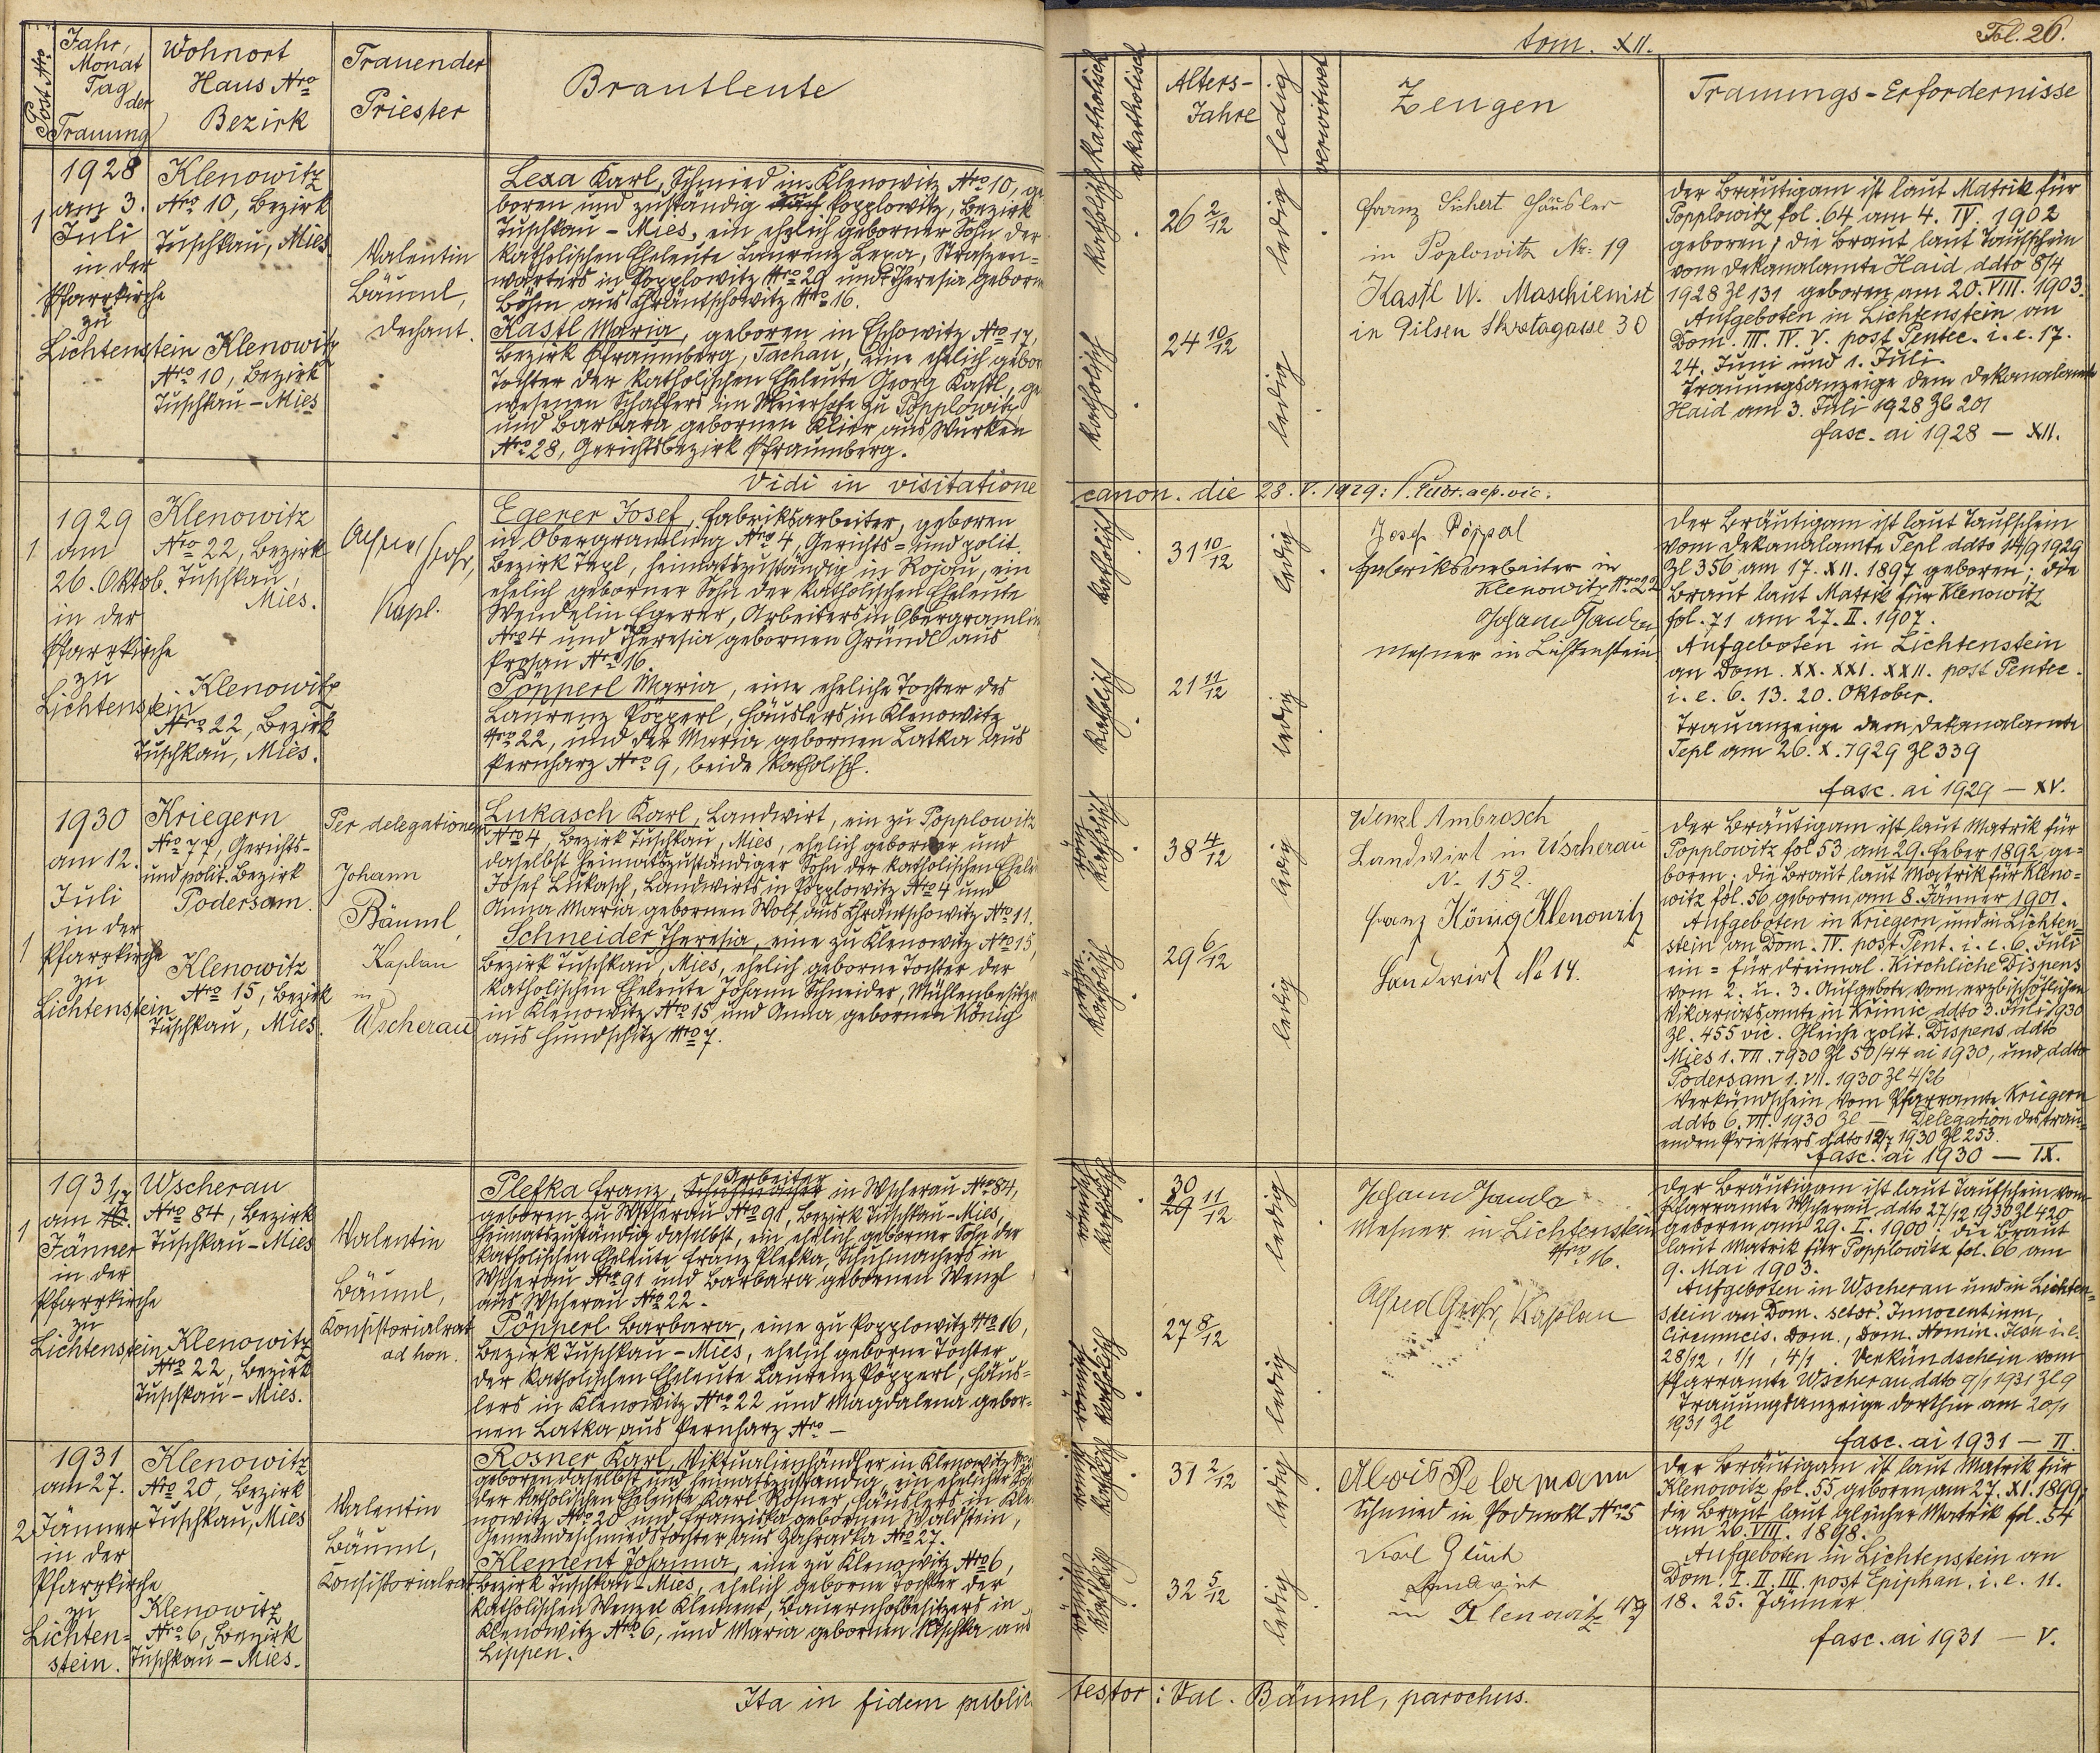 Post Nro
Jahr, Monat Tag der Trauung
Wohnort Haus Nro Bezirk
Trauender Priester
Brautleute
tom. XII.
Fol. 26.
katholisch
akatholisch
Alters-Jahre
ledig
verwitwet
Zeugen
Trauungs-Erfordernisse
1
1928
am 3.
Juli
in der
Pfarrkirche
zu
Lichtenstein
Klenowitz
Nro 10, Bezirk
Tuschkau, Mies
Klenowitz
Nro 10, Bezirk
Tuschkau - Mies
Valentin
Bäuml,
Dechant.
Lexa Karl, Schmied in Klenowitz Nro 10, ge
boren und zuständig Popplowitz, Bezirk
Tuschkau - Mies, ein ehelich geborner Sohn der
katholischen Eheleute Laurenz Lexa, Straßen=
wärters in Popplowitz Nro 29 und Theresia geborn
Böhm aus Chräntschowitz Nro 16.
Kastl Maria, geboren in Eschowitz Nro 17,
Bezirk Pfraumberg, Tachau, eine ehelich gebor
Tochter der katholischen Eheleute Georg Kastl, ge
wesenen Schaffers im Meierhofe zu Popplowitz
und Barbara gebornen Klier aus Wurken
Nro 28, Gerichtsbezirk Pfraumberg.
katholisch
26 2/12
ledig
katholisch
24 10/12
ledig
Franz Sichert Häusler
in Poplowitz Nr. 19
Kastl W. Maschienist
in Pilsen Skretagasse 30
Der Bräutigam ist laut Matrik für
Popplowitz fol. 64 am 4. IV. 1902
geboren; die Braut laut Taufschein
vom Dekanalamte Haid ddto 8/4
1928 Zl 131 geboren am 20. VIII. 1903.
Aufgeboten in Lichtenstein an
Dom. III. IV. V. post Pentec. i. e. 17.
24. Juni und 1. Juli.
Trauungsanzeige dem Dekanalamte
Haid am 3. Juli 1928 Zl 201
fasc. ai 1928 — XII.
Vidi in visitatione
canon. die 28. V. 1929:
1
1929
am
26. Oktob.
in der
Pfarrkirche
zu
Lichtenstein
Klenowitz
Nro 22, Bezirk
Tuschkau,
Mies.
Klenowitz
Nro 22, Bezirk
Tuschkau, Mies.
Alfred Grohr,
Kapl.
Egerer Josef, Fabriksarbeiter, geboren
in Obergramling Nro 4, Gerichts= und polit.
Bezirk Tepl, heimatszuständig in Rojau, ein
ehelich geborner Sohn der katholischen Eheleute
Wendelin Egerer, Arbeiters in Obergramlin
Nro 4 und Theresia gebornen Gründl aus
Prosau Nro 16.
Pöpperl Maria, eine eheliche Tochter des
Laurenz Pöpperl, Häuslers in Klenowitz
Nro 22, und der Maria gebornen Latka aus
Pernharz Nro 9, beide katholisch.
katholisch
31 10/12
ledig
katholisch
21 11/12
ledig
Josef Pöppal
Fabriksarbeiter in
Klenowitz Nro 22
Johann
Mesner in Lichtenstein
Der Bräutigam ist laut Taufschein
vom Dekanalamte Tepl ddto 14/9 1929
Zl 356 am 17. XII. 1897 geboren; die
Braut laut Matrik für Klenowitz
fol. 71 am 27. II. 1907.
Aufgeboten in Lichtenstein
an Dom. XX. XXI. XXII. post Pentec.
i. e. 6. 13. 20. Oktober.
Trauanzeige dem Dekanalamte
Tepl am 26. X. 1929 Zl 339
fasc. ai 1929 — XV.
1
1930
am 12.
Juli
in der
Pfarrkirche
zu
Lichtenstein
Kriegern
Nro 77, Gerichts-
und polit. Bezirk
Podersam.
Klenowitz
Nro 15, Bezirk
Tuschkau, Mies.
Per delegationem
Johann
Bäuml,
Kaplan
in
Wscherau
Lukasch Karl, Landwirt, ein zu Popplowitz
Nro 4 Bezirk Tuschkau, Mies, ehelich geborner und
daselbst heimatszuständiger Sohn der katholischen Ehele
Josef Lukasch, Landwirts in Popplowitz Nro 4 und
Anna Maria gebornen Wolf aus Chräntschowitz Nro 11.
Schneider Theresia, eine zu Klenowitz Nro 15,
Bezirk Tuschkau, Mies, ehelich geborne Tochter der
katholischen Eheleute Johann Schneider, Mühlenbesitze
in Klenowitz Nro 15 und Anna gebornen König
aus Hundschitz Nro 7.
röm katholisch
38 4/12
ledig
katholisch
29 6/12
ledig
Wenzl Ambrosch
Landwirt in Wscherau
N. 152.
Franz König Klenowitz
Landwirt No 14.
Der Bräutigam ist laut Matrik für
Popplowitz fol 53 am 29. Feber 1892 ge=
boren; die Braut laut Matrik für Kleno=
witz fol. 56 geboren am 8. Jänner 1901.
Aufgeboten in Kriegern und in Lichten=
stein an Dom. IV. post Pent. i. e. 6. Juli
ein = für dreimal. Kirchliche Dispens
vom 2. u. 3. Aufgebote vom erzbischöflichen
Vikariatsamte in Krimic ddto 3. Juli 1930
Zl. 455 vic. Gleiche polit. Dispens ddto
Mies 1. VII. 1930 Zl 50/44 ai 1930, und ddto
Podersam 1. VII. 1930 Zl 4/26
Verkündschein vom Pfarramte Kriegern
ddto 6. VII. 1930 Zl — Delegation des trau=
enden Priesters ddto 12/7 1930 Zl 253.
fasc. ai 1930 — IX.
1
1931
am 17.
Jänner
in der
Pfarrkirche
zu
Lichtenstein
Wscherau
Nro 84, Bezirk
Tuschkau - Mies
Klenowitz
Nro 22, Bezirk
Tuschkau - Mies.
Valentin
Bäuml,
Konsistorialrat
ad hon.
Plefka Franz, Schuhmacher Arbeiter in Wscherau Nro 84,
geboren zu Wscherau Nro 91, Bezirk Tuschkau-Mies,
heimatszuständig daselbst, ein ehelich geborner Sohn der
katholischen Eheleute Franz Plefka, Schuhmachers in
Wscherau Nro 91 und Barbara gebornen Wenzl
aus Wscherau Nro 22.
Pöpperl Barbara, eine zu Popplowitz Nro 16,
Bezirk Tuschkau - Mies, ehelich geborne Tochter
der katholischen Eheleute Laurenz Pöpperl, Häus=
lers in Klenowitz Nro 22 und Magdalena gebor=
nen Latka aus Pernharz Nro —
römisch katholisch
30
29 11/12
ledig
römisch katholisch
27 8/12
ledig
Johann Janda
Mesner in Lichtenstein
Nro 16.
Alfred Grohr, Kaplan
Der Bräutigam ist laut Taufschein vom
Pfarramte Wscherau ddto 27/12 1930 Zl 420
geboren am 29. I. 1900. die Braut
laut Matrik für Popplowitz fol. 66 am
9. Mai 1903.
Aufgeboten in Wscherau und in Lichten=
stein an Dom. sctor. Innocentium,
Circumcis. Dom., Dom. Nomin. Jesu i. e.
28/12, 1/1, 4/1. Verkündschein vom
Pfarramte Wscherau ddto 9/1 1931 Zl 9
Trauungsanzeige dorthin am 20/1
1931 Zl
fasc. ai 1931 — II.
2
1931
am 27.
Jänner
in der
Pfarrkirche
zu
Lichten=
stein.
Klenowitz
Nro 20, Bezirk
Tuschkau, Mies
Klenowitz
Nro 6, Bezirk
Tuschkau - Mies.
Valentin
Bäuml,
Konsistorialrat
Rosner Karl, Viktualienhändler in Klenowitz
geboren daselbst und heimatszuständig, ein ehelicher Soh
der katholischen Eheleute Karl Rosner, Häuslers in Kle
nowitz Nro 20 und Franziska gebornen Waldstein,
Gemeindeschmiedstochter aus Zahradka Nro 27.
Klement Johanna, eine zu Klenowitz Nro 6,
Bezirk Tuschkau - Mies, ehelich geborne Tochter der
katholischen Wenzel Klement, Bauernhofbesitzers in
Klenowitz Nro 6, und Maria gebornen aus
Lippen.
römisch katholisch
31 2/12
ledig
römisch katholisch
32 5/12
ledig
Alois Petermann
Schmied in Podmokl Nro 5
Karl Glück
Landwirt
in Klenowitz No 9
Der Bräutigam ist laut Matrik für
Klenowitz fol. 55 geboren am 27. XI. 1899;
die Braut laut gleicher Matrik fol. 54
am 26. VIII. 1898.
Aufgeboten in Lichtenstein an
Dom. I. II. III. post Epiphan. i. e. 11.
18. 25. Jänner
fasc. ai 1931 — V.
Ita in fidem public
testor: Val. Bäuml, parochus.